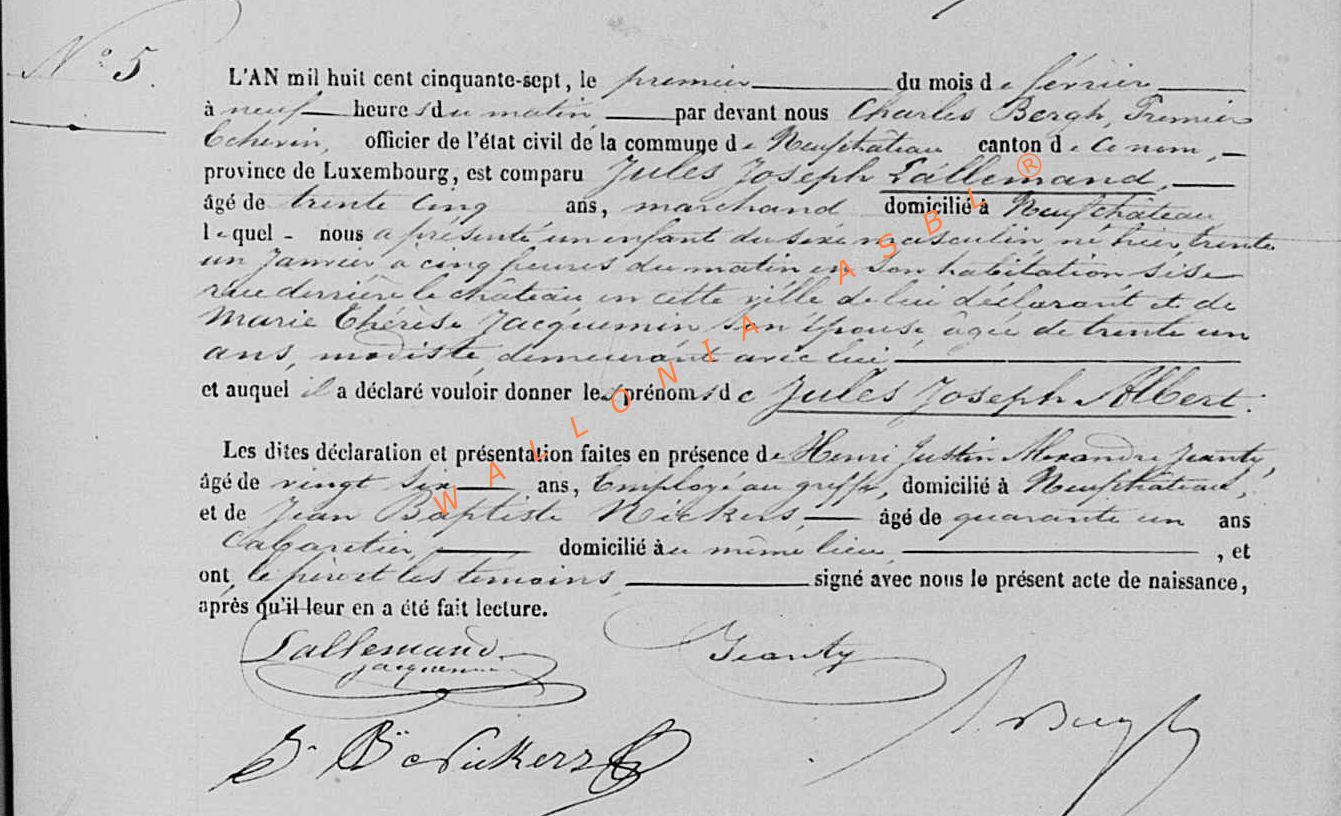 N° 5.
L'AN mil huit cent cinquante-sept, le premier du mois de février
à neuf heures du matin, par devant nous Charles Bergh, Premier
Echevin, officier de l'état civil de la commune de Neufchâteau canton de ce nom,
province de Luxembourg, est comparu Jules Joseph Lallemand,
âgé de trente cinq ans, marchand domicilié à Neufchâteau
lequel nous a présenté un enfant du sexe masculin né hier trente
un Janvier à cinq heures du matin en son habitation sise
rue derrière le château en cette ville de lui déclarant et de
Marie Thérèse Jacquemin son épouse, âgée de trente un
ans, modiste, demeurant avec lui
et auquel il a déclaré vouloir donner les prénoms de Jules Joseph Albert.
Les dites déclaration et présentation faites en présence de Henri Justin Alexandre Jeanty,
âgé de vingt six ans, Employé au greffe, domicilié à Neufchâteau,
et de Jean Baptiste Nickers, âgé de quarante un ans
Cabaretier, domicilié au même lieu, et
ont, le père et les témoins, signé avec nous le présent acte de naissance,
après qu'il leur en a été fait lecture.
Lallemand Jeanty
Jacquemin
Bergh
Jn Bte Nickers
WALLONIA ASBL ®